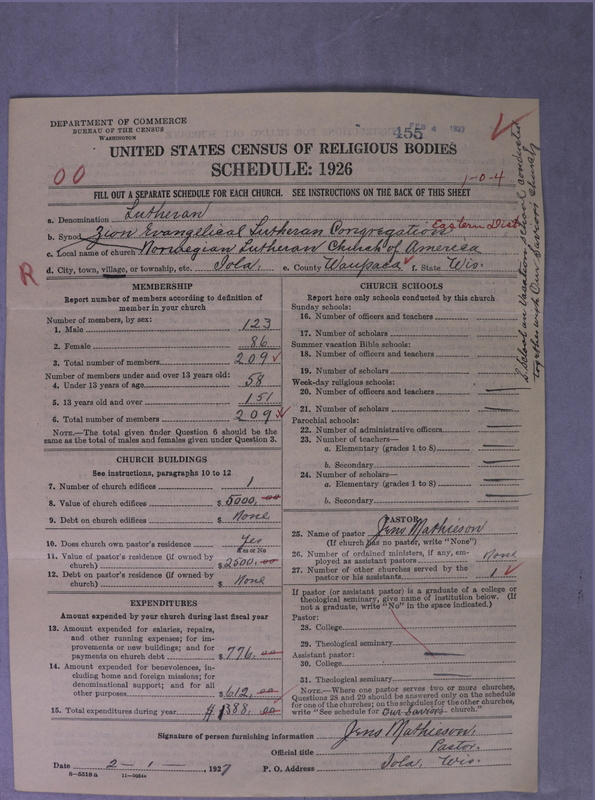 DEPARTMENT OF COMMERCE
BUREAU OF THE CENSUS
WASHINGTON
FEB 4 1927
455
UNITED STATES CENSUS OF RELIGIOUS BODIES
SCHEDULE: 1926
00
1-0-4
FILL OUT A SEPARATE SCHEDULE FOR EACH CHURCH. SEE INSTRUCTIONS ON THE BACK OF THIS SHEET
a. Denomination Lutheran
b. Synod Zion Evangelical Lutheran Congregation Eastern Dist
c. Local name of church Norwegian Lutheran Church of America
R
d. City, town, village, or township, etc. Iola. e. County Waupaca f. State Wis.
S. School and Vacation school conducted
together with Our Saviors Church
MEMBERSHIP
Report number of members according to definition of
member in your church
Number of members, by sex:
1. Male 123
2. Female 86
3. Total number of members 209
Number of members under and over 13 years old:
4. Under 13 years of age 58
5. 13 years old and over 151
6. Total number of members 209
NOTE.—The total given under Question 6 should be the
same as the total of males and females given under Question 3.
CHURCH BUILDINGS
See instructions, paragraphs 10 to 12
7. Number of church edifices 1
8. Value of church edifices $ 5000.00
9. Debt on church edifices $ None
10. Does church own pastor's residence? Yes
Yes or No
11. Value of pastor's residence (if owned by
church) $ 2500.00
12. Debt on pastor's residence (if owned by
church) $ None
EXPENDITURES
Amount expended by your church during last fiscal year
13. Amount expended for salaries, repairs,
and other running expenses; for im-
provements or new buildings; and for
payments on church debt $ 776.00
14. Amount expended for benevolences, in-
cluding home and foreign missions; for
denominational support; and for all
other purposes $ 612.00
15. Total expenditures during year $ 1388.00
CHURCH SCHOOLS
Report here only schools conducted by this church
Sunday schools:
16. Number of officers and teachers
17. Number of scholars
Summer vacation Bible schools:
18. Number of officers and teachers
19. Number of scholars
Week-day religious schools:
20. Number of officers and teachers
21. Number of scholars
Parochial schools:
22. Number of administrative officers
23. Number of teachers—
a. Elementary (grades 1 to 8)
b. Secondary
24. Number of scholars—
a. Elementary (grades 1 to 8)
b. Secondary
PASTOR
25. Name of pastor Jens Mathieson
(If church has no pastor, write "None")
26. Number of ordained ministers, if any, em-
ployed as assistant pastors None
27. Number of other churches served by the
pastor or his assistants 1
If pastor (or assistant pastor) is a graduate of a college or
theological seminary, give name of institution below. (If
not a graduate, write "No" in the space indicated.)
Pastor:
28. College
29. Theological seminary
Assistant pastor:
30. College
31. Theological seminary
NOTE.—Where one pastor serves two or more churches,
Questions 28 and 29 should be answered only on the schedule
for one of the churches; on the schedules for the other churches,
write "See schedule for Our Saviors church."
Signature of person furnishing information Jens Mathieson.
Official title Pastor.
Date 2-1-, 1927 P. O. Address Iola, Wis.